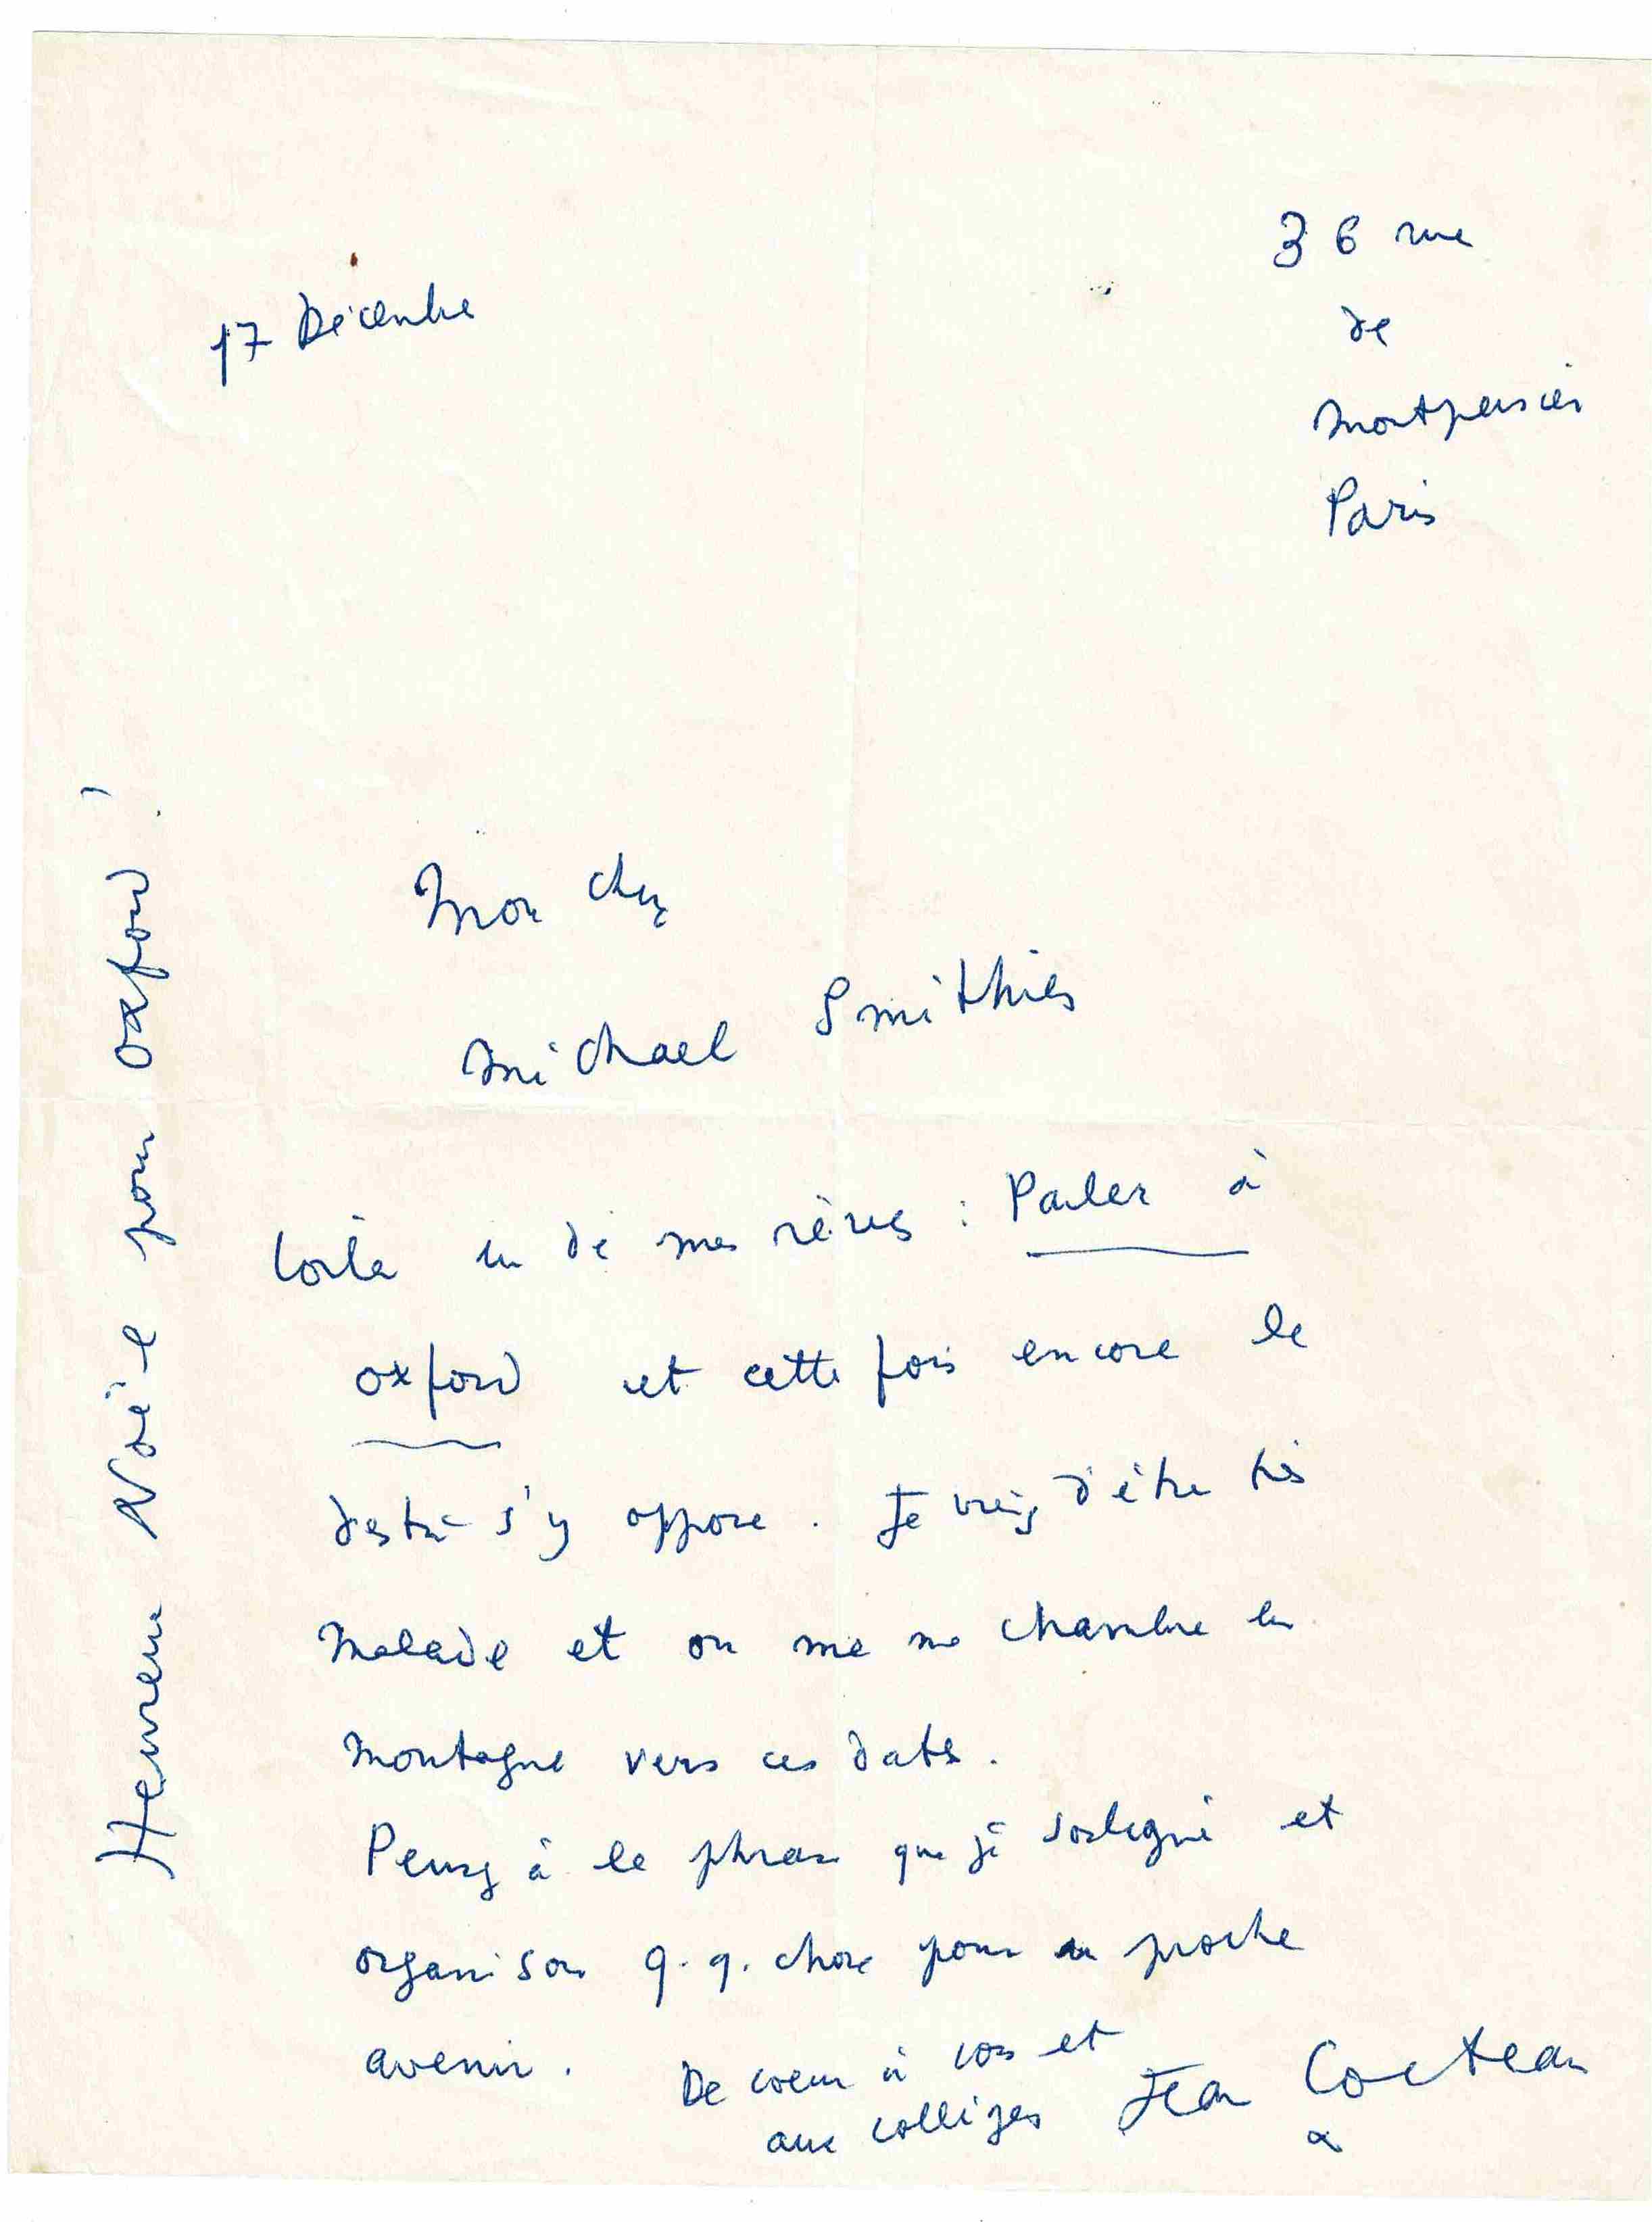 36 rue
de
Montpensier
Paris
17 Décembre
Mon cher
Michael Smithies
Voilà un de mes rêves : Parler à
Oxford et cette fois encore le
destin s'y oppose. Je viens d'être très
malade et on me chambre en
montagne vers ces dates.
Pensez à la phrase que j'ai souligné et
organisons q.q. chose pour un proche
avenir.
De coeur à vous et
aux collèges Jean Cocteau
Heureux Noël pour Oxford !